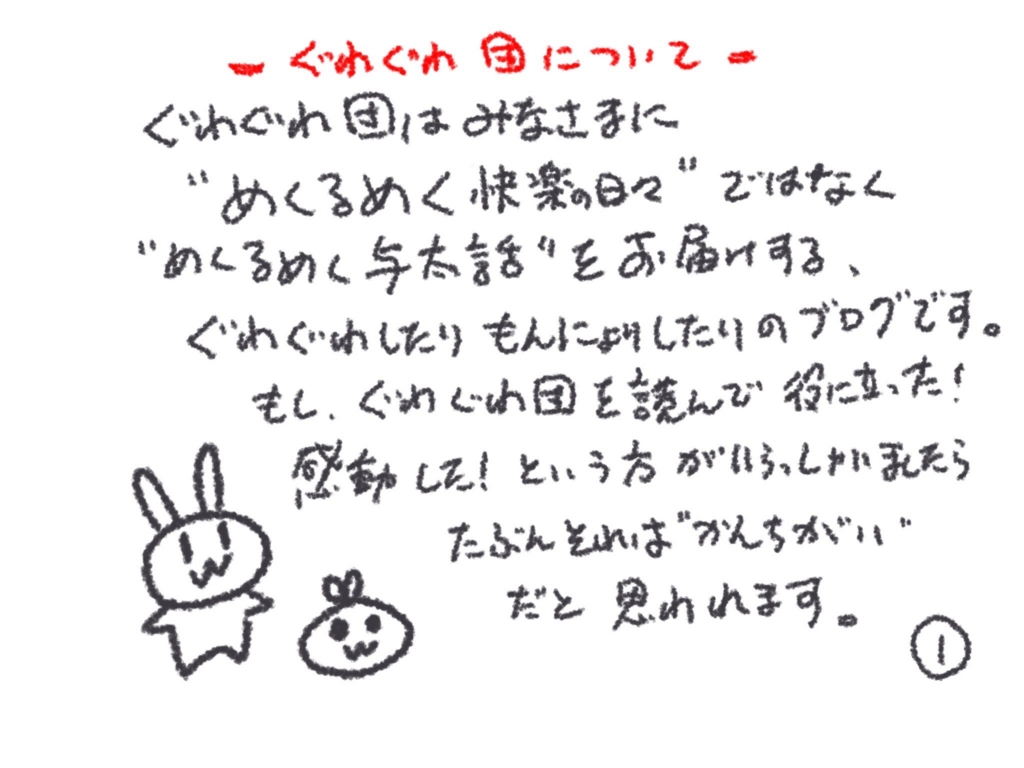 ーぐわぐわ団についてー
ぐわぐわ団はみなさまに
"めくるめく快楽の日々"ではなく
"めくるめく与太話"をお届けする、
ぐわぐわしたりもんにょりしたりのブログです。
もし、ぐわぐわ団を読んで役に立った!
感動した!という方がいらっしゃいましたら
たぶんそれは"かんちがい"
だと思われます。
①